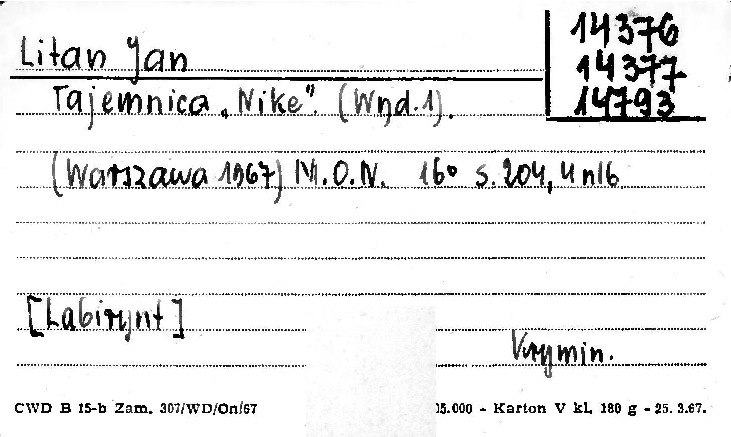 Litan Jan
14376
14377
14793
Tajemnica „Nike”. (Wyd. 1).
(Warszawa 1967) M.O.N. 16° s. 204, 4 nlb
[Labirynt]
Krymin.
CWD B 15-b Zam. 307/WD/On/67 15.000 - Karton V kl. 180 g - 25. 3.67.